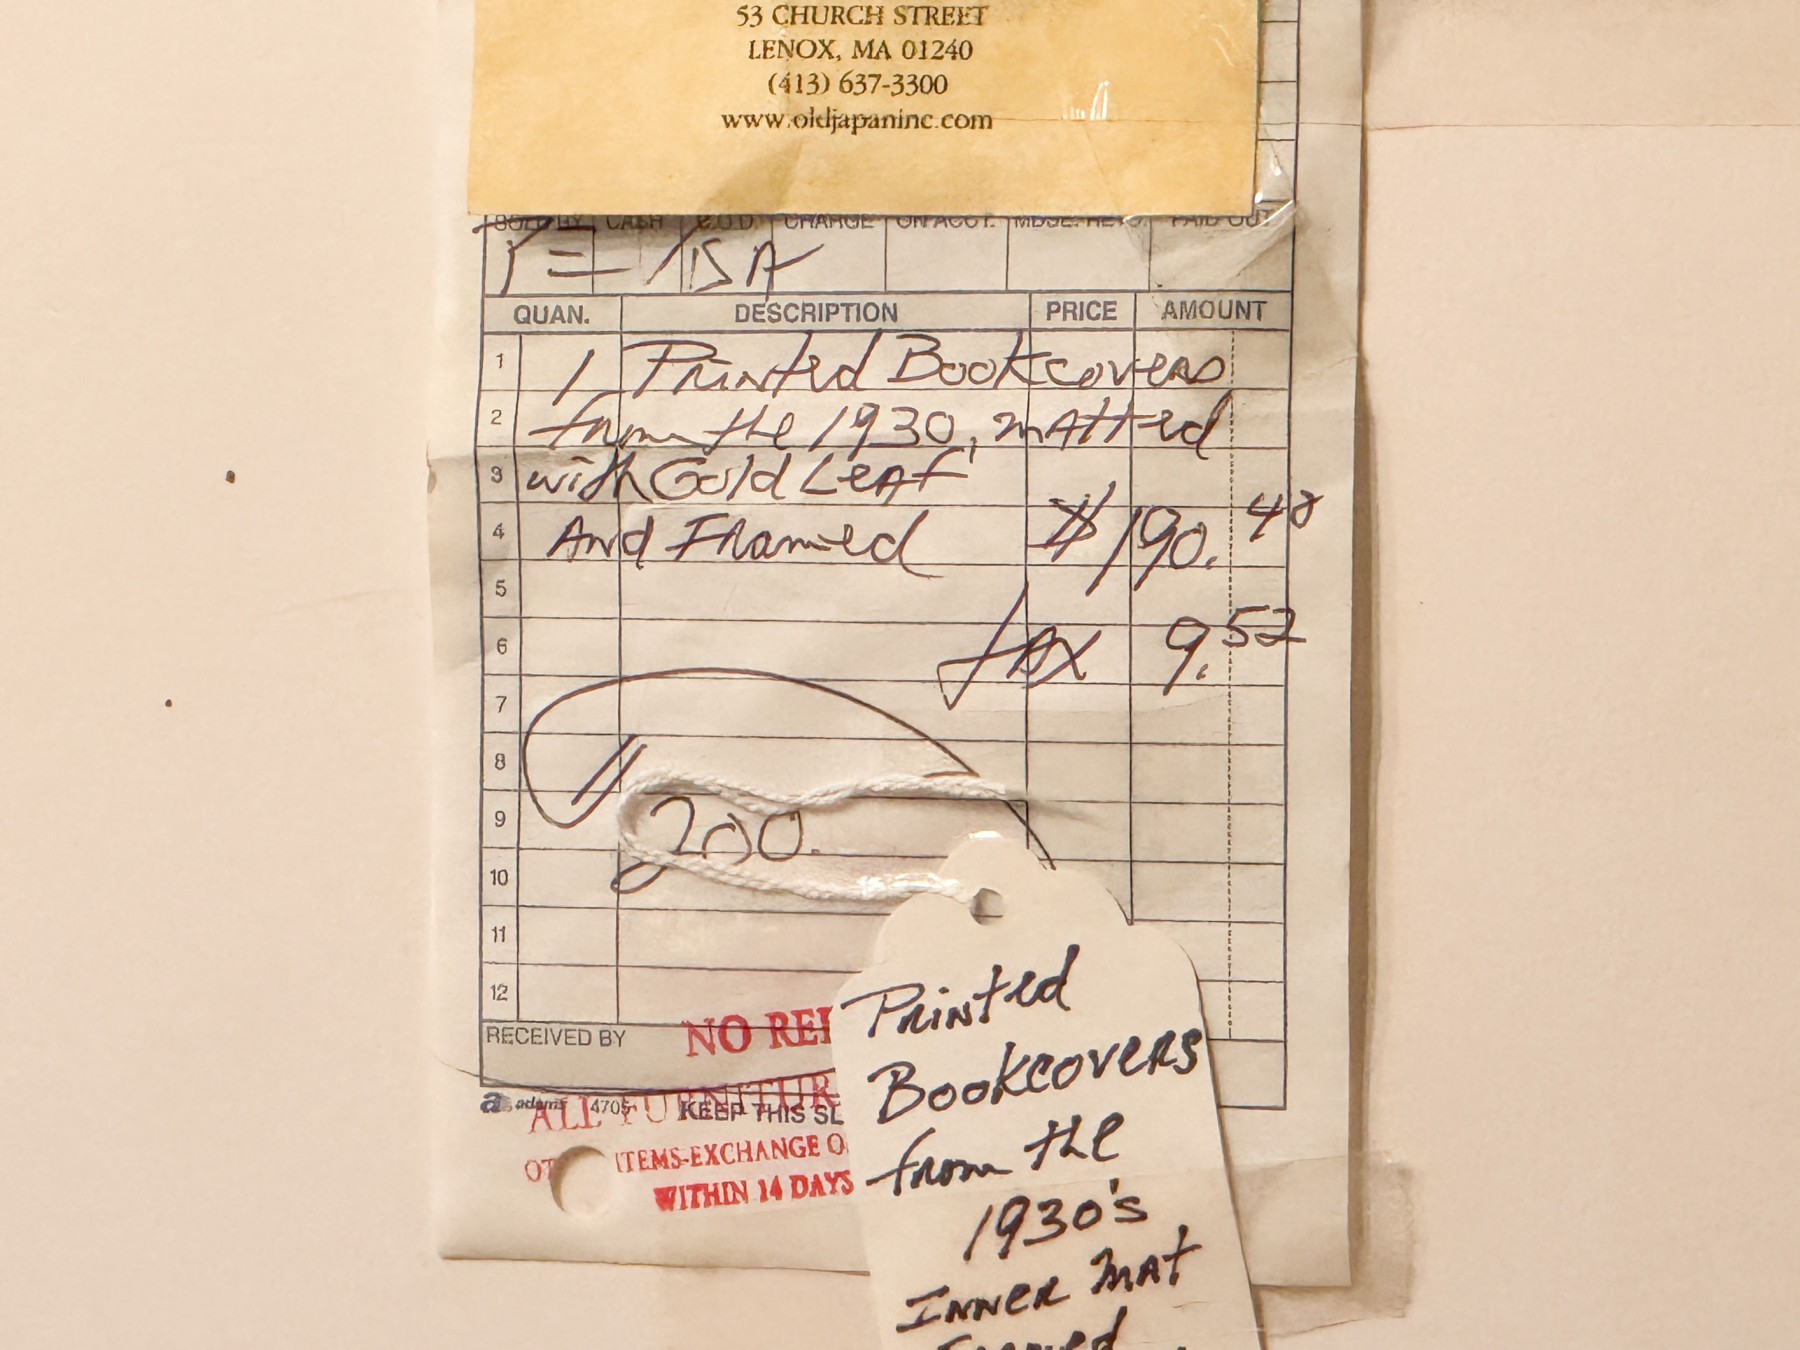 53 CHURCH STREET
LENOX, MA 01240
(413) 637-3300
www.oldjapaninc.com
SOLD BY CASH C.O.D. CHARGE ON ACCT. MDSE. RETD. PAID OUT
QUAN. DESCRIPTION PRICE AMOUNT
1 1 Printed Bookcovers
2 from the 1930, matted
3 with Gold Leaf
4 And Framed $190.48
5
6 tax 9.52
7
8
9 200.
10
11
12
RECEIVED BY NO
adams 4705 KEEP THIS
ALL
ITEMS-EXCHANGE
WITHIN 14 DAYS
Printed
Bookcovers
from the
1930's
Inner mat